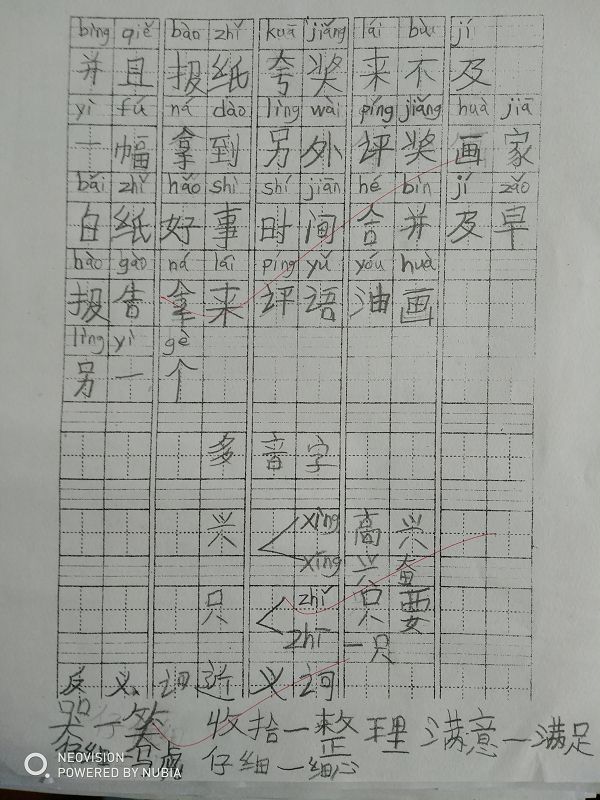 bìng qiě bào zhǐ kuā jiǎng lái bù jí
并且报纸夸奖来不及
yì fú ná dào lìng wài píng jiǎng huà jiā
一幅拿到另外评奖画家
bái zhǐ hǎo shì shí jiān hé bìn jí zǎo
白纸好事时间合并及早
bào gào ná lái píng yǔ yóu huà
报告拿来评语油画
lìng yí gè
另一个
多音字
xìng 高兴
兴
xīng 兴奋
zhǐ 只要
只
zhī 一只
反义词近义词
哭一笑 收拾一整理 满意一满足
仔细一马虎 仔细一细心
NEOVISION
POWERED BY NUBIA